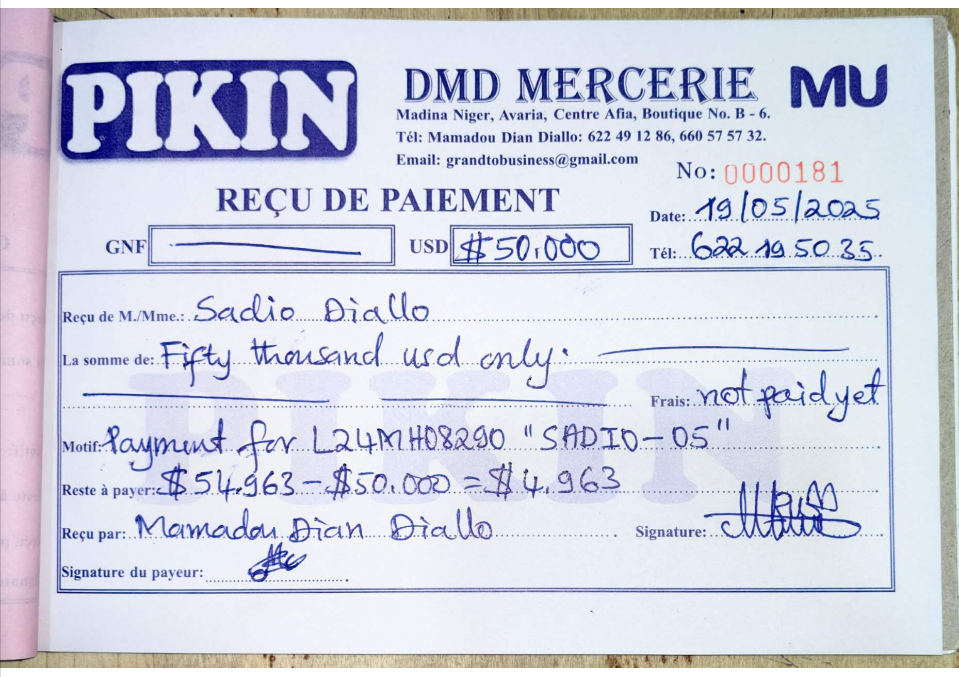 PIKIN
DMD MERCERIE
MU
Madina Niger, Avaria, Centre Afia, Boutique No. B - 6.
Tél: Mamadou Dian Diallo: 622 49 12 86, 660 57 57 32.
Email: grandtobusiness@gmail.com
No: 0000181
REÇU DE PAIEMENT
Date: 19/05/2025
GNF USD $50.000 Tél: 622 19 50 35
Reçu de M./Mme.: Sadio Diallo
La somme de: Fifty thousand usd only.
Frais: not paid yet
Motif: Payment for L24MH08290 "SADIO-05"
Reste à payer: $54.963 - $50.000 = $4.963
Reçu par: Mamadou Dian Diallo Signature:
Signature du payeur:
PIKIN